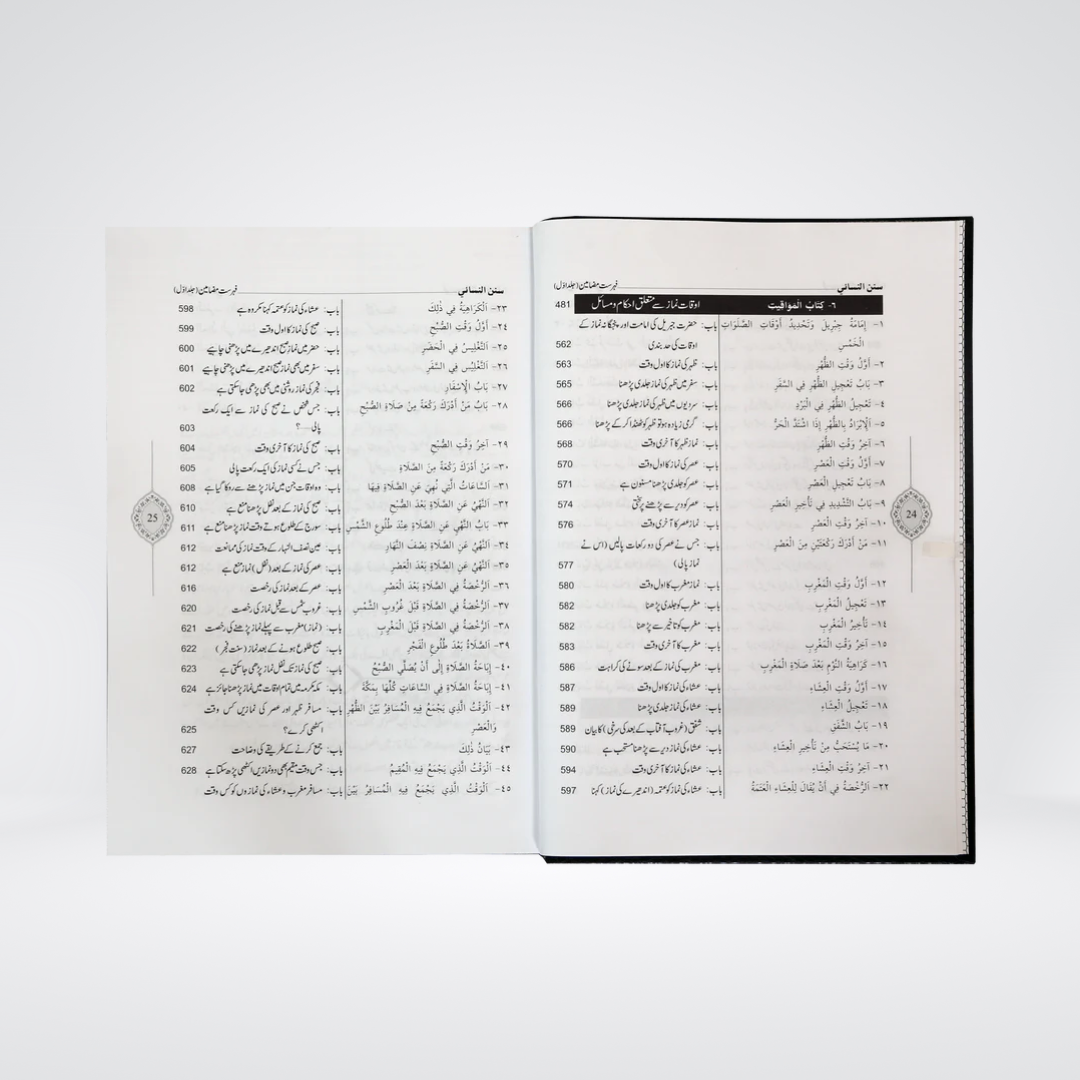 سنن النسائي فہرست مضامین (جلد اوّل)
٦- كِتَابُ الْمَوَاقِيتِ اوقات نماز سے متعلق احکام و مسائل 481
١- إِمَامَةُ جِبْرِيلَ وَتَحْدِيدُ أَوْقَاتِ الصَّلَوَاتِ باب: حضرت جبریل کی امامت اور پنجگانہ نماز کے
الْخَمْسِ اوقات کی حد بندی 562
٢- أَوَّلُ وَقْتِ الظُّهْرِ باب: ظہر کی نماز کا اول وقت 563
٣- بَابُ تَعْجِيلِ الظُّهْرِ فِي السَّفَرِ باب: سفر میں ظہر کی نماز جلدی پڑھنا 565
٤- تَعْجِيلُ الظُّهْرِ فِي الْبَرْدِ باب: سردیوں میں ظہر کی نماز جلدی پڑھنا 566
٥- اَلْإِبْرَادُ بِالظُّهْرِ إِذَا اشْتَدَّ الْحَرُّ باب: گرمی زیادہ ہو تو ظہر کو ٹھنڈا کر کے پڑھنا 566
٦- آخِرُ وَقْتِ الظُّهْرِ باب: نماز ظہر کا آخری وقت 568
٧- أَوَّلُ وَقْتِ الْعَصْرِ باب: عصر کی نماز کا اول وقت 570
٨- بَابُ تَعْجِيلِ الْعَصْرِ باب: عصر کو جلدی پڑھنا مسنون ہے 571
٩- بَابُ التَّشْدِيدِ فِي تَأْخِيرِ الْعَصْرِ باب: عصر کو دیر سے پڑھنے پر سختی 574
١٠- آخِرُ وَقْتِ الْعَصْرِ باب: نماز عصر کا آخری وقت 576
١١- مَنْ أَدْرَكَ رَكْعَتَيْنِ مِنَ الْعَصْرِ باب: جس نے عصر کی دو رکعات پالیں (اس نے
نماز پالی) 577
١٢- أَوَّلُ وَقْتِ الْمَغْرِبِ باب: نماز مغرب کا اول وقت 580
١٣- تَعْجِيلُ الْمَغْرِبِ باب: مغرب کو جلدی پڑھنا 582
١٤- تَأْخِيرُ الْمَغْرِبِ باب: مغرب کو تاخیر سے پڑھنا 582
١٥- آخِرُ وَقْتِ الْمَغْرِبِ باب: مغرب کا آخری وقت 583
١٦- كَرَاهِيَةُ النَّوْمِ بَعْدَ صَلَاةِ الْمَغْرِبِ باب: مغرب کی نماز کے بعد سونے کی کراہت 586
١٧- أَوَّلُ وَقْتِ الْعِشَاءِ باب: عشاء کی نماز کا اول وقت 587
١٨- تَعْجِيلُ الْعِشَاءِ باب: عشاء کی نماز جلدی پڑھنا 589
١٩- بَابُ الشَّفَقِ باب: شفق (غروب آفتاب کے بعد کی سرخی) کا بیان 589
٢٠- مَا يُسْتَحَبُّ مِنْ تَأْخِيرِ الْعِشَاءِ باب: عشاء کی نماز دیر سے پڑھنا مستحب ہے 590
٢١- آخِرُ وَقْتِ الْعِشَاءِ باب: عشاء کی نماز کا آخری وقت 594
٢٢- اَلرُّخْصَةُ فِي أَنْ يُقَالَ لِلْعِشَاءِ الْعَتَمَةُ باب: عشاء کی نماز کو عتمہ (اندھیرے کی نماز) کہنا 597
24
سنن النسائي فہرست مضامین (جلد اوّل)
٢٣- اَلْكَرَاهِيَةُ فِي ذٰلِكَ باب: عشاء کی نماز کو عتمہ کہنا مکروہ ہے 598
٢٤- أَوَّلُ وَقْتِ الصُّبْحِ باب: صبح کی نماز کا اول وقت 599
٢٥- اَلتَّغْلِيسُ فِي الْحَضَرِ باب: حضر میں نماز صبح اندھیرے میں پڑھنی چاہیے 600
٢٦- اَلتَّغْلِيسُ فِي السَّفَرِ باب: سفر میں بھی نماز صبح اندھیرے میں پڑھنی چاہیے 601
٢٧- بَابُ الْإِسْفَارِ باب: فجر کی نماز روشنی میں بھی پڑھی جا سکتی ہے 602
٢٨- بَابُ مَنْ أَدْرَكَ رَكْعَةً مِنْ صَلَاةِ الصُّبْحِ باب: جس شخص نے صبح کی نماز سے ایک رکعت
پالی.....؟ 603
٢٩- آخِرُ وَقْتِ الصُّبْحِ باب: صبح کی نماز کا آخری وقت 604
٣٠- مَنْ أَدْرَكَ رَكْعَةً مِنَ الصَّلَاةِ باب: جس نے کسی نماز کی ایک رکعت پالی 605
٣١- اَلسَّاعَاتُ الَّتِي نُهِيَ عَنِ الصَّلَاةِ فِيهَا باب: وہ اوقات جن میں نماز پڑھنے سے روکا گیا ہے 608
٣٢- اَلنَّهْيُ عَنِ الصَّلَاةِ بَعْدَ الصُّبْحِ باب: صبح کی نماز کے بعد نفل پڑھنا منع ہے 610
٣٣- بَابُ النَّهْيِ عَنِ الصَّلَاةِ عِنْدَ طُلُوعِ الشَّمْسِ باب: سورج کے طلوع ہوتے وقت نماز پڑھنا منع ہے 611
٣٤- اَلنَّهْيُ عَنِ الصَّلَاةِ نِصْفَ النَّهَارِ باب: عین نصف النہار کے وقت نماز کی ممانعت 612
٣٥- اَلنَّهْيُ عَنِ الصَّلَاةِ بَعْدَ الْعَصْرِ باب: عصر کی نماز کے بعد (نفل) نماز منع ہے 612
٣٦- اَلرُّخْصَةُ فِي الصَّلَاةِ بَعْدَ الْعَصْرِ باب: عصر کے بعد نماز کی رخصت 616
٣٧- اَلرُّخْصَةُ فِي الصَّلَاةِ قَبْلَ غُرُوبِ الشَّمْسِ باب: غروب شمس سے قبل نماز کی رخصت 620
٣٨- اَلرُّخْصَةُ فِي الصَّلَاةِ قَبْلَ الْمَغْرِبِ باب: (نماز) مغرب سے پہلے نماز پڑھنے کی رخصت 621
٣٩- اَلصَّلَاةُ بَعْدَ طُلُوعِ الْفَجْرِ باب: صبح طلوع ہونے کے بعد نماز (سنت فجر) 622
٤٠- إِبَاحَةُ الصَّلَاةِ إِلَى أَنْ يُصَلِّيَ الصُّبْحَ باب: صبح کی نماز تک نفل نماز پڑھی جا سکتی ہے 623
٤١- إِبَاحَةُ الصَّلَاةِ فِي السَّاعَاتِ كُلِّهَا بِمَكَّةَ باب: مکہ مکرمہ میں تمام اوقات میں نماز پڑھنا جائز ہے 624
٤٢- اَلْوَقْتُ الَّذِي يَجْمَعُ فِيهِ الْمُسَافِرُ بَيْنَ الظُّهْرِ باب: مسافر ظہر اور عصر کی نمازیں کس وقت
وَالْعَصْرِ اکٹھی کرے؟ 625
٤٣- بَيَانُ ذٰلِكَ باب: جمع کرنے کے طریقے کی وضاحت 627
٤٤- اَلْوَقْتُ الَّذِي يَجْمَعُ فِيهِ الْمُقِيمُ باب: جس وقت مقیم بھی دو نمازیں اکٹھی پڑھ سکتا ہے 628
٤٥- اَلْوَقْتُ الَّذِي يَجْمَعُ فِيهِ الْمُسَافِرُ بَيْنَ باب: مسافر مغرب و عشاء کی نمازوں کو کس وقت
25